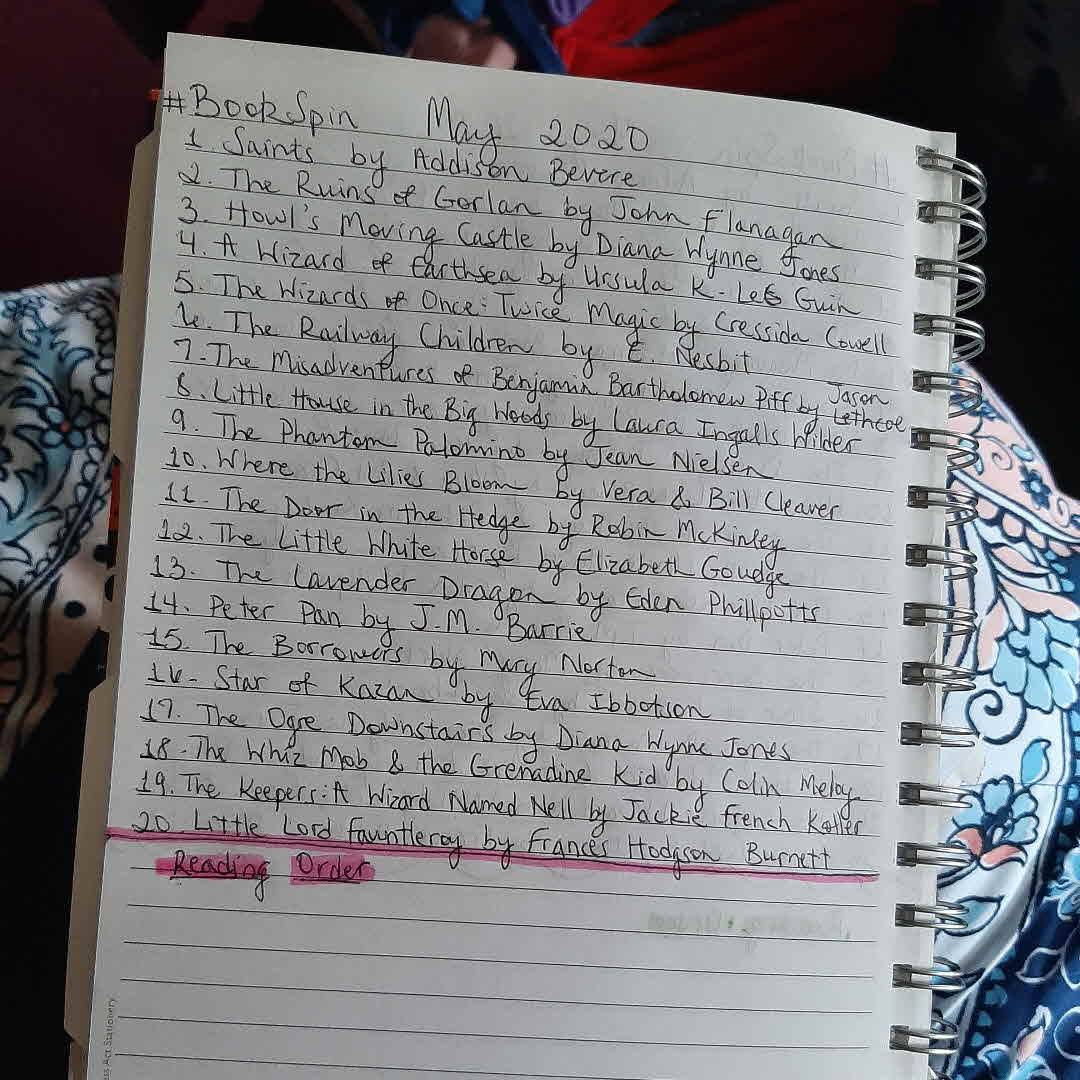 #BookSpin May 2020
1. Saints by Addison Bevere
2. The Ruins of Gorlan by John Flanagan
3. Howl's Moving Castle by Diana Wynne Jones
4. A Wizard of Earthsea by Ursula K. Le Guin
5. The Wizards of Once: Twice Magic by Cressida Cowell
6. The Railway Children by E. Nesbit
7. The Misadventures of Benjamin Bartholomew Piff by Jason Lethcoe
8. Little House in the Big Woods by Laura Ingalls Wilder
9. The Phantom Palomino by Jean Nielsen
10. Where the Lilies Bloom by Vera & Bill Cleaver
11. The Door in the Hedge by Robin McKinley
12. The Little White Horse by Elizabeth Goudge
13. The Lavender Dragon by Eden Phillpotts
14. Peter Pan by J.M. Barrie
15. The Borrowers by Mary Norton
16. Star of Kazan by Eva Ibbotson
17. The Ogre Downstairs by Diana Wynne Jones
18. The Whiz Mob & the Grenadine Kid by Colin Meloy
19. The Keepers: A Wizard Named Nell by Jackie French Koller
20. Little Lord Fauntleroy by Frances Hodgson Burnett
Reading Order
Act Stationery